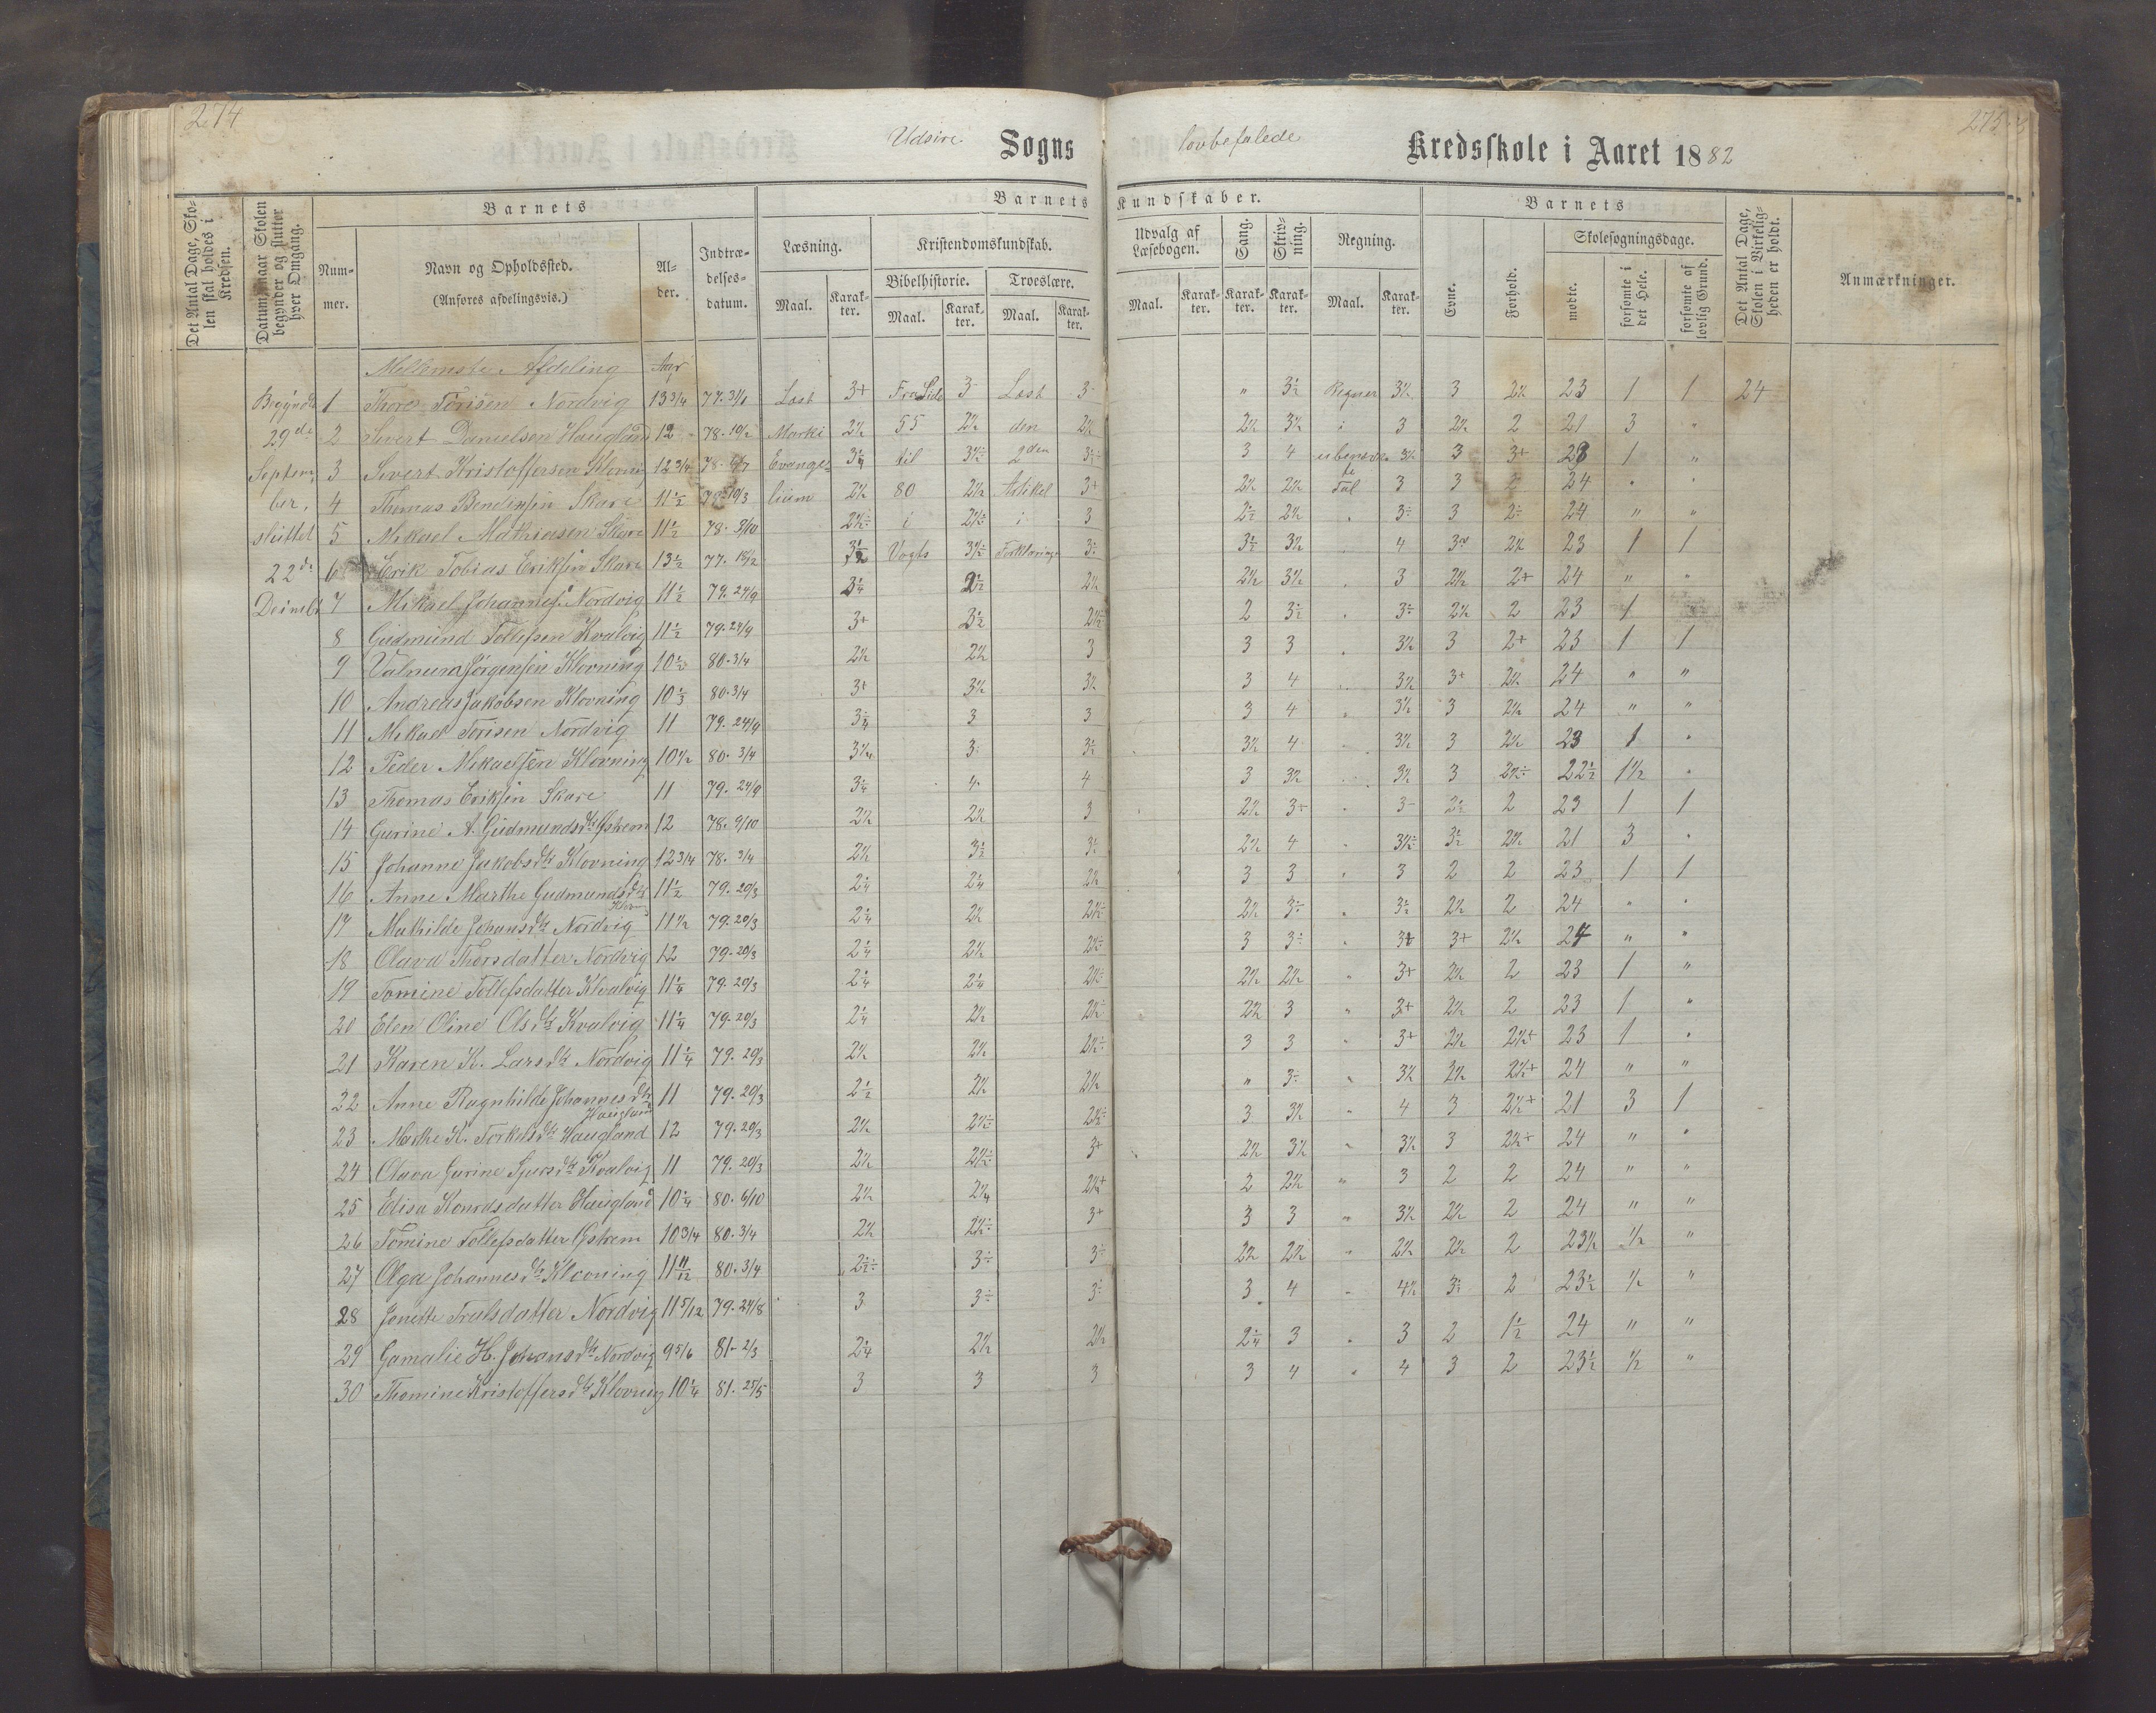 274
275
Udsire Sogns lovbefalede Kredsskole i Aaret 1882
Det Antal Dage, Skolen skal holdes i Kredsen.
Datum, naar Skolen begynder og slutter hver Omgang.
Barnets
Nummer.
Navn og Opholdssted.
(Anføres afdelingsvis.)
Alder.
Indtrædelsesdatum.
Barnets Kundskaber.
Læsning.
Maal. Karakter.
Kristendomskundskab.
Bibelhistorie. Troeslære.
Maal. Karakter. Maal. Karakter.
Udvalg af Læsebogen.
Maal. Karakter.
Sang. Karakter.
Skrivning. Karakter.
Regning.
Maal. Karakter.
Barnets
Evne. Forhold.
Skolesøgningsdage.
mødte. forsømte i det Hele. forsømte af lovlig Grund.
Det Antal Dage, Skolen i Virkeligheden er holdt.
Anmærkninger.
Mellemste Afdeling Aar
Begyndte 1 Thore Torisen Nordvig 13 3/4 77. 31/1 Læst 3+ Fra Side 3- Læst 3- " 3½ Regner 3½ 3 2½ 23 1 1 24
29de 2 Sivert Danielsen Haugland 12 78. 10/2 Marki 2½ 55 2½ den 2½ 2½ 3½ i 3 2½ 2 21 3 "
Septem 3 Sivert Kristoffersen Klovning 12 3/4 78. Evange- 3¼ til 3½ 2den 3 4 ubenævn- 3½ 3 3+ 23 1 "
ber, 4 Thomas Bendixsen Skare 11½ 78. 10/3 lium 2½ 80 2½ Artikel 3+ 2½ 2½ te Tal 3 3 2 24 " "
sluttet 5 Mikael Mathiasen Skare 11½ 78. 3/10 2½÷ i 2½÷ i 3 2½ 2½ " 3÷ 3 2÷ 24 " "
22de 6 Erik Tobias Eriksen Skare 13½ 77. 3½ Vogts 3½÷ Forklaring 3÷ 3½ 3½ " 4 3 2½ 23 1 1
7 Mikael Johannes. Nordvig 11½ 79. 24/9 3¼ 2½ 2½ 2½ 3½ " 3 2½ 2+ 24 " "
8 Gudmund Tollefsen Kvalvig 11½ 79. 24/9 3+ 3½ 2½÷ 2 3÷ " 3÷ 2½ 2 23 1 "
9 Valnum Jørgensen Klovning 10½ 80. 3/4 2½ 2½ 3 3 3 " 3½ 3 2+ 23 1 1
10 Andreas Jakobsen Klovning 10 1/3 80. 3/4 3+ 3½ 3½ 3 4 " 3½ 3+ 2½ 24 " "
11 Mikael Torisen Nordvig 11 79. 24/9 3¼ 3 3 3 4 " 3½ 3 2½ 24 " "
12 Peder Mikaelsen Klovning 10½ 80. 3/4 3¼ 3÷ 3½ 3½ 4 " 3½ 3 2½ 23 1 "
13 Thomas Eriksen Skare 11 79. 24/9 3¼ 4 4 3 3½ " 3½ 3 2½÷ 22½ 1½ "
14 Gurine A. Gudmundsdtr 12 78. 9/10 2½ 2½ 3 2½ 3+ " 3- 2½ 2 23 1 1
15 Johanne Jakobsdtr Klovning 12 3/4 78. 3/4 2½ 3½ 3½ 2½ 4 " 3½÷ 3½ 2½ 21 3 "
16 Anne Marthe Gudmundsdtr Klov 11½ 79. 20/3 2¼ 2¼ 2½ 3 3 " 3 2 2 23 1 1
17 Mathilde Johansdtr Nordvig 11½ 79. 20/3 2¼ 2½ 2½÷ 2½ 3÷ " 3½ 2½ 2 24 " "
18 Olava Thorsdatter Nordvig 12 79. 20/3 2¼ 2½ 2½÷ 3 3÷ " 3½ 3+ 2½ 24 " "
19 Tomine Tollefsdatter Kvalvig 11¼ 79. 20/3 2¼ 2¼ 2½÷ 2½ 2½ " 3+ 2½ 2 23 1 "
20 Elen Oline Olsdtr Kvalvig 11¼ 79. 20/3 2¼ 2½ 2½÷ 2½ 3 " 3+ 2½ 2 23 1 "
21 Karen K. Larsdtr Nordvig 11¼ 79. 20/3 2½ 2½ 2½÷ 3 3 " 3+ 2½ 2½+ 23 1 "
22 Anne Ragnhilde Johannesdtr Haugland 11 79. 20/3 2½ 2½ 2½ " 3÷ " 3½ 2½ 2½+ 24 " "
23 Marthe K. Torkelsdtr Haugland 12 79. 20/3 2½ 2½÷ 2½÷ 3 3½ " 4 3 2½+ 21 3 1
24 Olava Gurine Kvalvig 11 79. 20/3 2½ 2½÷ 3+ 2½ 3½ " 3½ 3 2½+ 24 " "
25 Elisa Konradsdatter Haugland 10¼ 80. 6/10 2½ 2¼ 2½+ 2 2½ " 3 2 2 24 " "
26 Tomine Tollefsdatter 10 3/4 80. 3/4 2½ 2½÷ 3+ 3 3 " 3½ 2½ 2 24 " "
27 Olga Johannesdtr Klovning 11 11/12 80. 3/4 2½÷ 3÷ 3÷ 2½ 2½ " 2½ 2½ 2 23½ ½ "
28 Jonette Trulsdatter Nordvig 11 5/12 79. 24/8 3 3÷ 3÷ 3 4 " 4½ 3÷ 2 23½ ½ "
29 Gamalie H. Johansdtr Nordvig 9 5/6 81. 2/3 2¼ 2½ 2½ 2¼ 3 " 3 2 1½ 24 " "
30 Thomine Kristoffersdtr Klovning 10¼ 81. 25/5 3 3 3 3 4 " 4 3 2 23½ ½ "